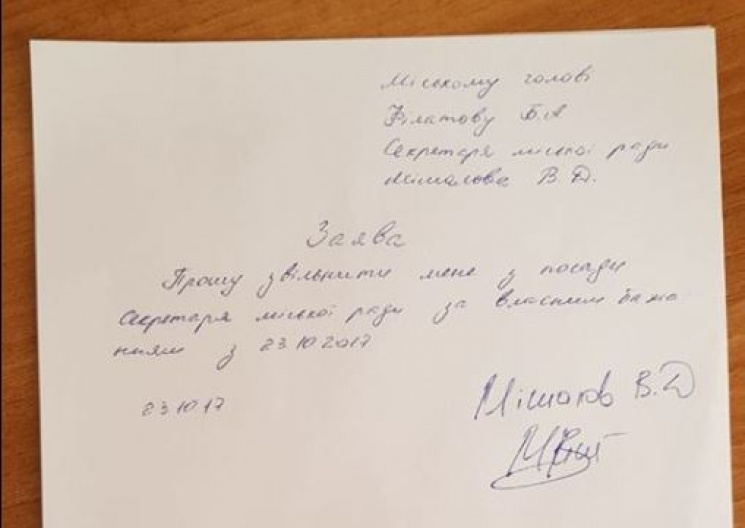 Міському голові
Філатову Б.А
Секретаря міської ради
Мішалова В.Д.
Заява
Прошу звільнити мене з посади
Секретаря міської ради за власним бажа
нням з 23.10 2017
23.10 17
Мішалов В.Д